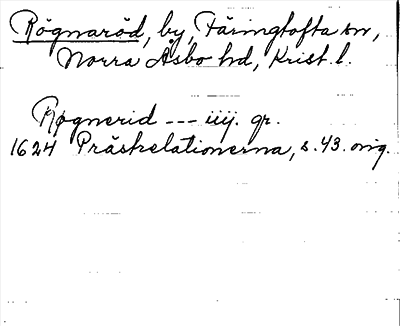 Rögnaröd, by, Färingtofta sn,
Norra Åsbo hd, Krist. l.
Røgnerid --- iiij. gr.
1624 Prästrelationerna, s. 43. orig.